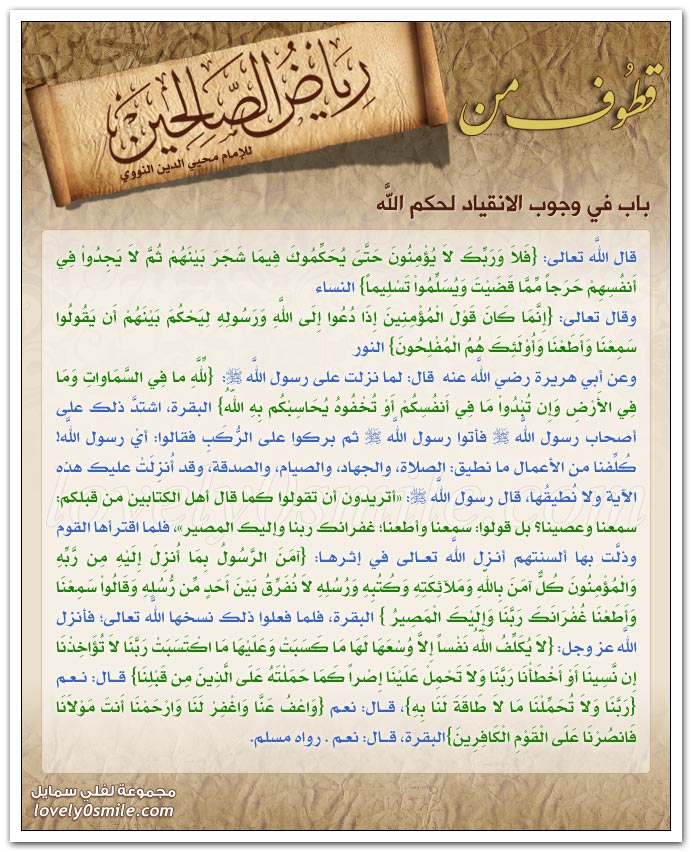 قطوف من
رياض الصالحين
للإمام محيي الدين النووي
باب في وجوب الانقياد لحكم اللَّه
قال اللَّه تعالى: {فَلاَ وَرَبِّكَ لا يُؤْمِنُونَ حَتَّىَ يُحَكِّمُوكَ فِيمَا شَجَرَ بَيْنَهُمْ ثُمَّ لاَ يَجِدُواْ فِي
أَنفُسِهِمْ حَرَجاً مِّمَّا قَضَيْتَ وَيُسَلِّمُواْ تَسْلِيماً} النساء
وقال تعالى: {إِنَّمَا كَانَ قَوْلَ الْمُؤْمِنِينَ إِذَا دُعُوا إِلَى اللَّهِ وَرَسُولِهِ لِيَحْكُمَ بَيْنَهُمْ أَن يَقُولُوا
سَمِعْنَا وَأَطَعْنَا وَأُوْلَئِكَ هُمُ الْمُفْلِحُونَ} النور
وعن أبي هريرة رضي اللَّه عنه قال: لما نزلت على رسول اللَّه ﷺ: {لِّلَّهِ ما فِي السَّمَاواتِ وَمَا
فِي الأَرْضِ وَإِن تُبْدُواْ مَا فِي أَنفُسِكُمْ أَوْ تُخْفُوهُ يُحَاسِبْكُم بِهِ اللّهُ} البقرة، اشتدَّ ذلك على
أصحاب رسول اللَّه ﷺ فأتوا رسول اللَّه ﷺ ثم بركوا على الرُّكَبِ فقالوا: أيْ رسول اللَّه!
كُلِّفنا من الأعمال ما نطيق: الصلاة، والجهاد، والصيام، والصدقة، وقد أُنزِلَتْ عليك هذه
الآية ولا نُطيقُها، قال رسول اللَّه ﷺ: «أتريدون أن تقولوا كما قال أهل الكتابين من قبلكم:
سمعنا وعصينا؟ بل قولوا: سمعنا وأطعنا؛ غفرانك ربنا وإليك المصير»، فلما اقترأها القوم
وذلَّت بها ألسنتهم أنزل اللَّه تعالى في إثرها: {آمَنَ الرَّسُولُ بِمَا أُنزِلَ إِلَيْهِ مِن رَّبِّهِ
وَالْمُؤْمِنُونَ كُلٌّ آمَنَ بِاللّهِ وَمَلآئِكَتِهِ وَكُتُبِهِ وَرُسُلِهِ لاَ نُفَرِّقُ بَيْنَ أَحَدٍ مِّن رُّسُلِهِ وَقَالُواْ سَمِعْنَا
وَأَطَعْنَا غُفْرَانَكَ رَبَّنَا وَإِلَيْكَ الْمَصِيرُ } البقرة، فلما فعلوا ذلك نسخها اللَّه تعالى؛ فأنزل
اللَّه عز وجل: {لاَ يُكَلِّفُ اللّهُ نَفْساً إِلاَّ وُسْعَهَا لَهَا مَا كَسَبَتْ وَعَلَيْهَا مَا اكْتَسَبَتْ رَبَّنَا لاَ تُؤَاخِذْنَا
إِن نَّسِينَا أَوْ أَخْطَأْنَا رَبَّنَا وَلاَ تَحْمِلْ عَلَيْنَا إِصْراً كَمَا حَمَلْتَهُ عَلَى الَّذِينَ مِن قَبْلِنَا} قـال: نـعم
{رَبَّنَا وَلاَ تُحَمِّلْنَا مَا لاَ طَاقَةَ لَنَا بِهِ}، قـال: نعم {وَاعْفُ عَنَّا وَاغْفِرْ لَنَا وَارْحَمْنَا أَنتَ مَوْلاَنَا
فَانصُرْنَا عَلَى الْقَوْمِ الْكَافِرِينَ}البقرة، قـال: نعم . رواه مسلم.
مجموعة لفلي سمايل
lovely0smile.com